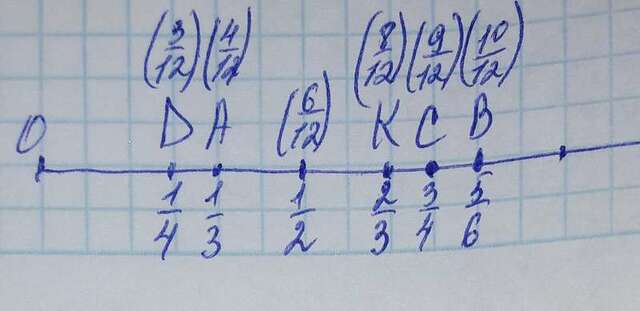 (3/12) (4/12) (8/12) (9/12) (10/12)
(6/12)
O D A K C B
1/4 1/3 1/2 2/3 3/4 5/6